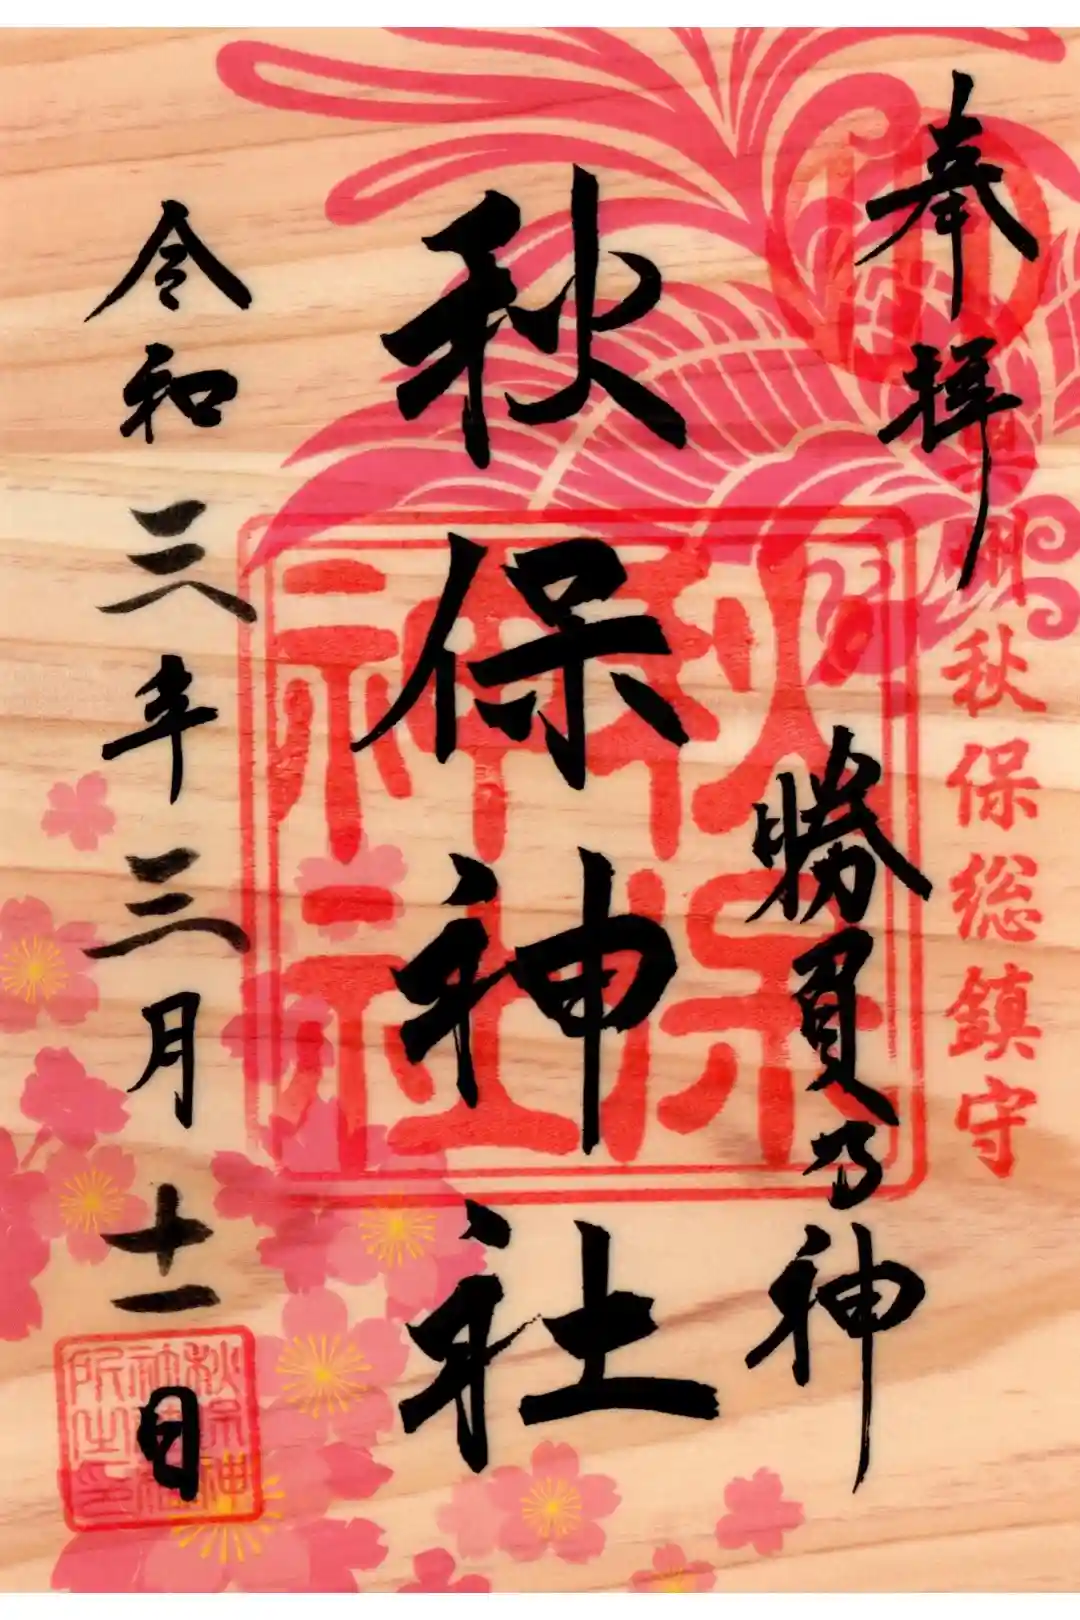 奉拝
奥州秋保総鎮守
勝負の神
秋保神社
秋保神社
令和三年三月十一日
秋保神社所之印